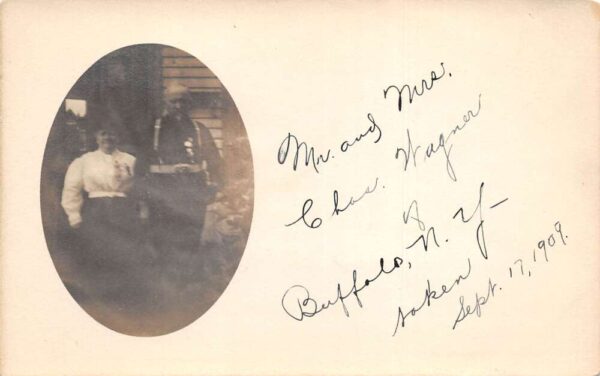 Mr. and Mrs.
Chas. Wagner
of
Buffalo, N. Y.
taken
Sept. 17, 1909.